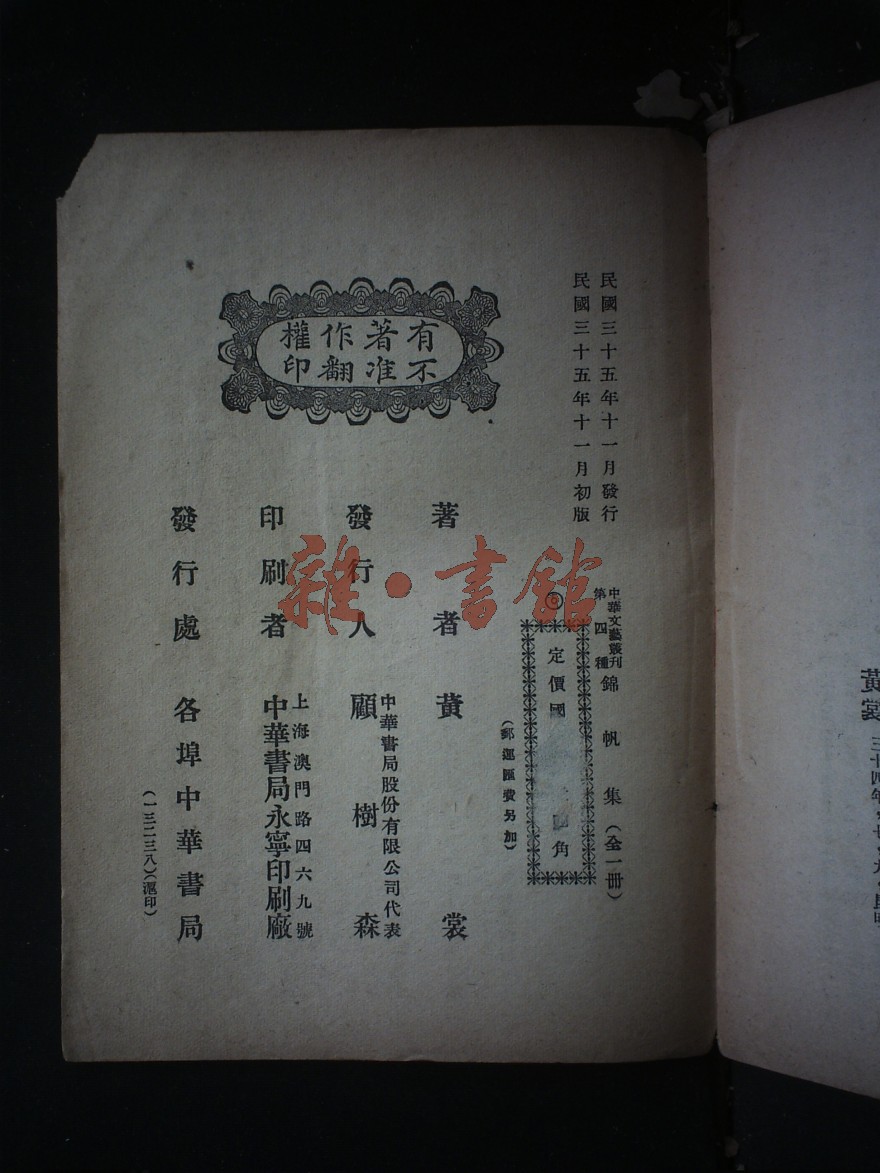 民國三十五年十一月發行
民國三十五年十一月初版
中華文藝叢刊
第四種
錦帆集(全一冊)
⑥
定價國
角
(郵運匯費另加)
有著作權
不准翻印
著者 黃裳
發行人 中華書局股份有限公司代表
顧樹森
印刷者 上海澳門路四六九號
中華書局永寧印刷廠
發行處 各埠中華書局
(一三二三八)(滬印)
雜·書館
黃裳